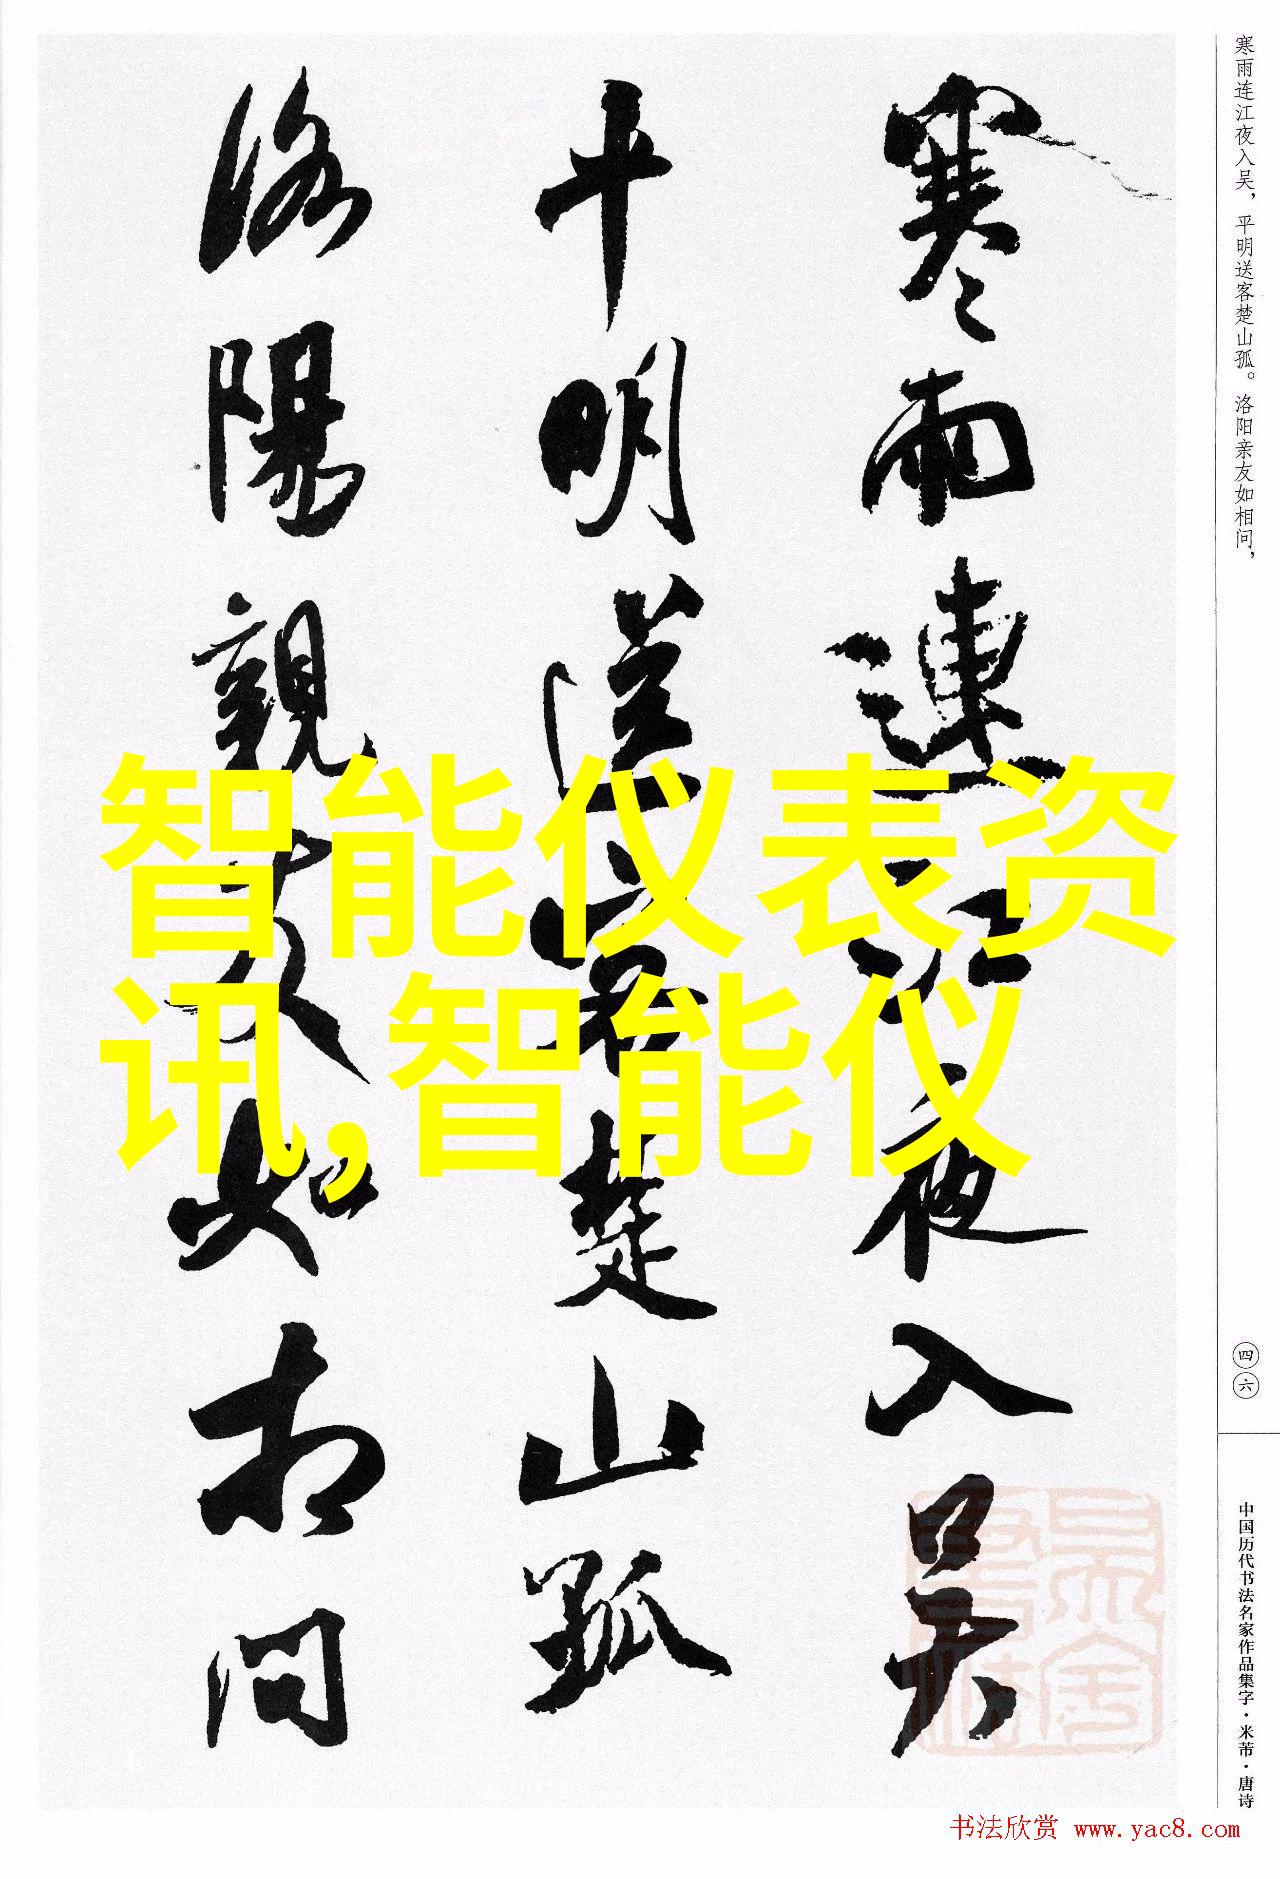 寒雨連江夜入吴
平明送客楚山孤
洛陽親友如相問
智能仪表资
讯,智能仪
寒雨连江夜入吴，平明送客楚山孤。洛阳亲友如相问，
四六
中国历代书法名家作品集字·米芾·唐诗
书法欣赏 www.yac8.com